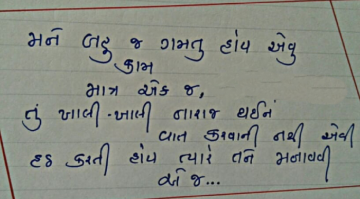 મને બહુ જ ગમતુ હોય એવુ
કામ
માત્ર એક જ,
તું ખાલી-ખાલી નારાજ થઈને
વાત કરવાની નથી એવી
હઠ કરતી હોય ત્યારે તને મનાવવી
એ જ...